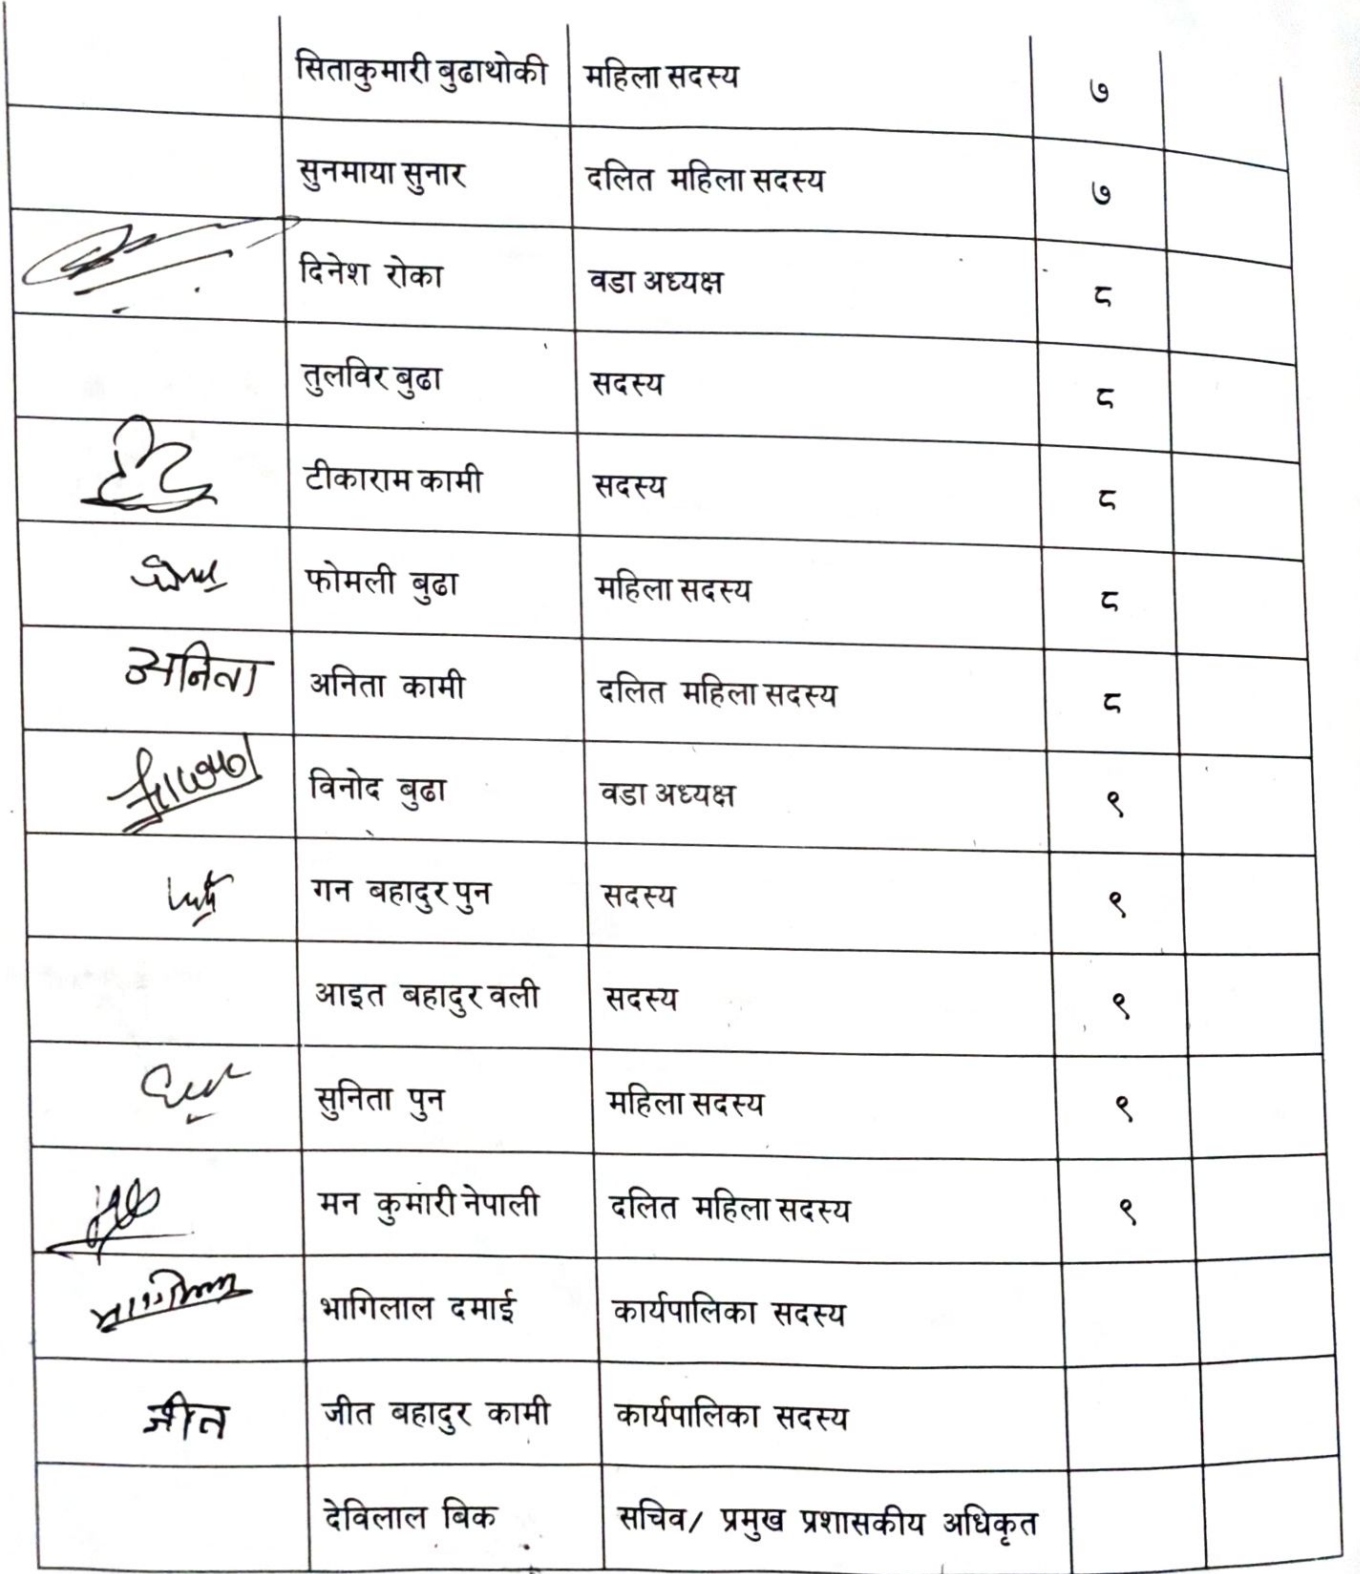 सिताकुमारी बुढाथोकी महिला सदस्य ७
सुनमाया सुनार दलित महिला सदस्य ७
दिनेश रोका वडा अध्यक्ष ८
तुलविर बुढा सदस्य ८
टीकाराम कामी सदस्य ८
फोमली बुढा महिला सदस्य ८
अनिता अनिता कामी दलित महिला सदस्य ८
विनोद बुढा वडा अध्यक्ष ९
गन बहादुर पुन सदस्य ९
आइत बहादुर वली सदस्य ९
सुनिता पुन महिला सदस्य ९
मन कुमारी नेपाली दलित महिला सदस्य ९
भागिलाल दमाई कार्यपालिका सदस्य
जीत जीत बहादुर कामी कार्यपालिका सदस्य
देविलाल बिक सचिव/ प्रमुख प्रशासकीय अधिकृत